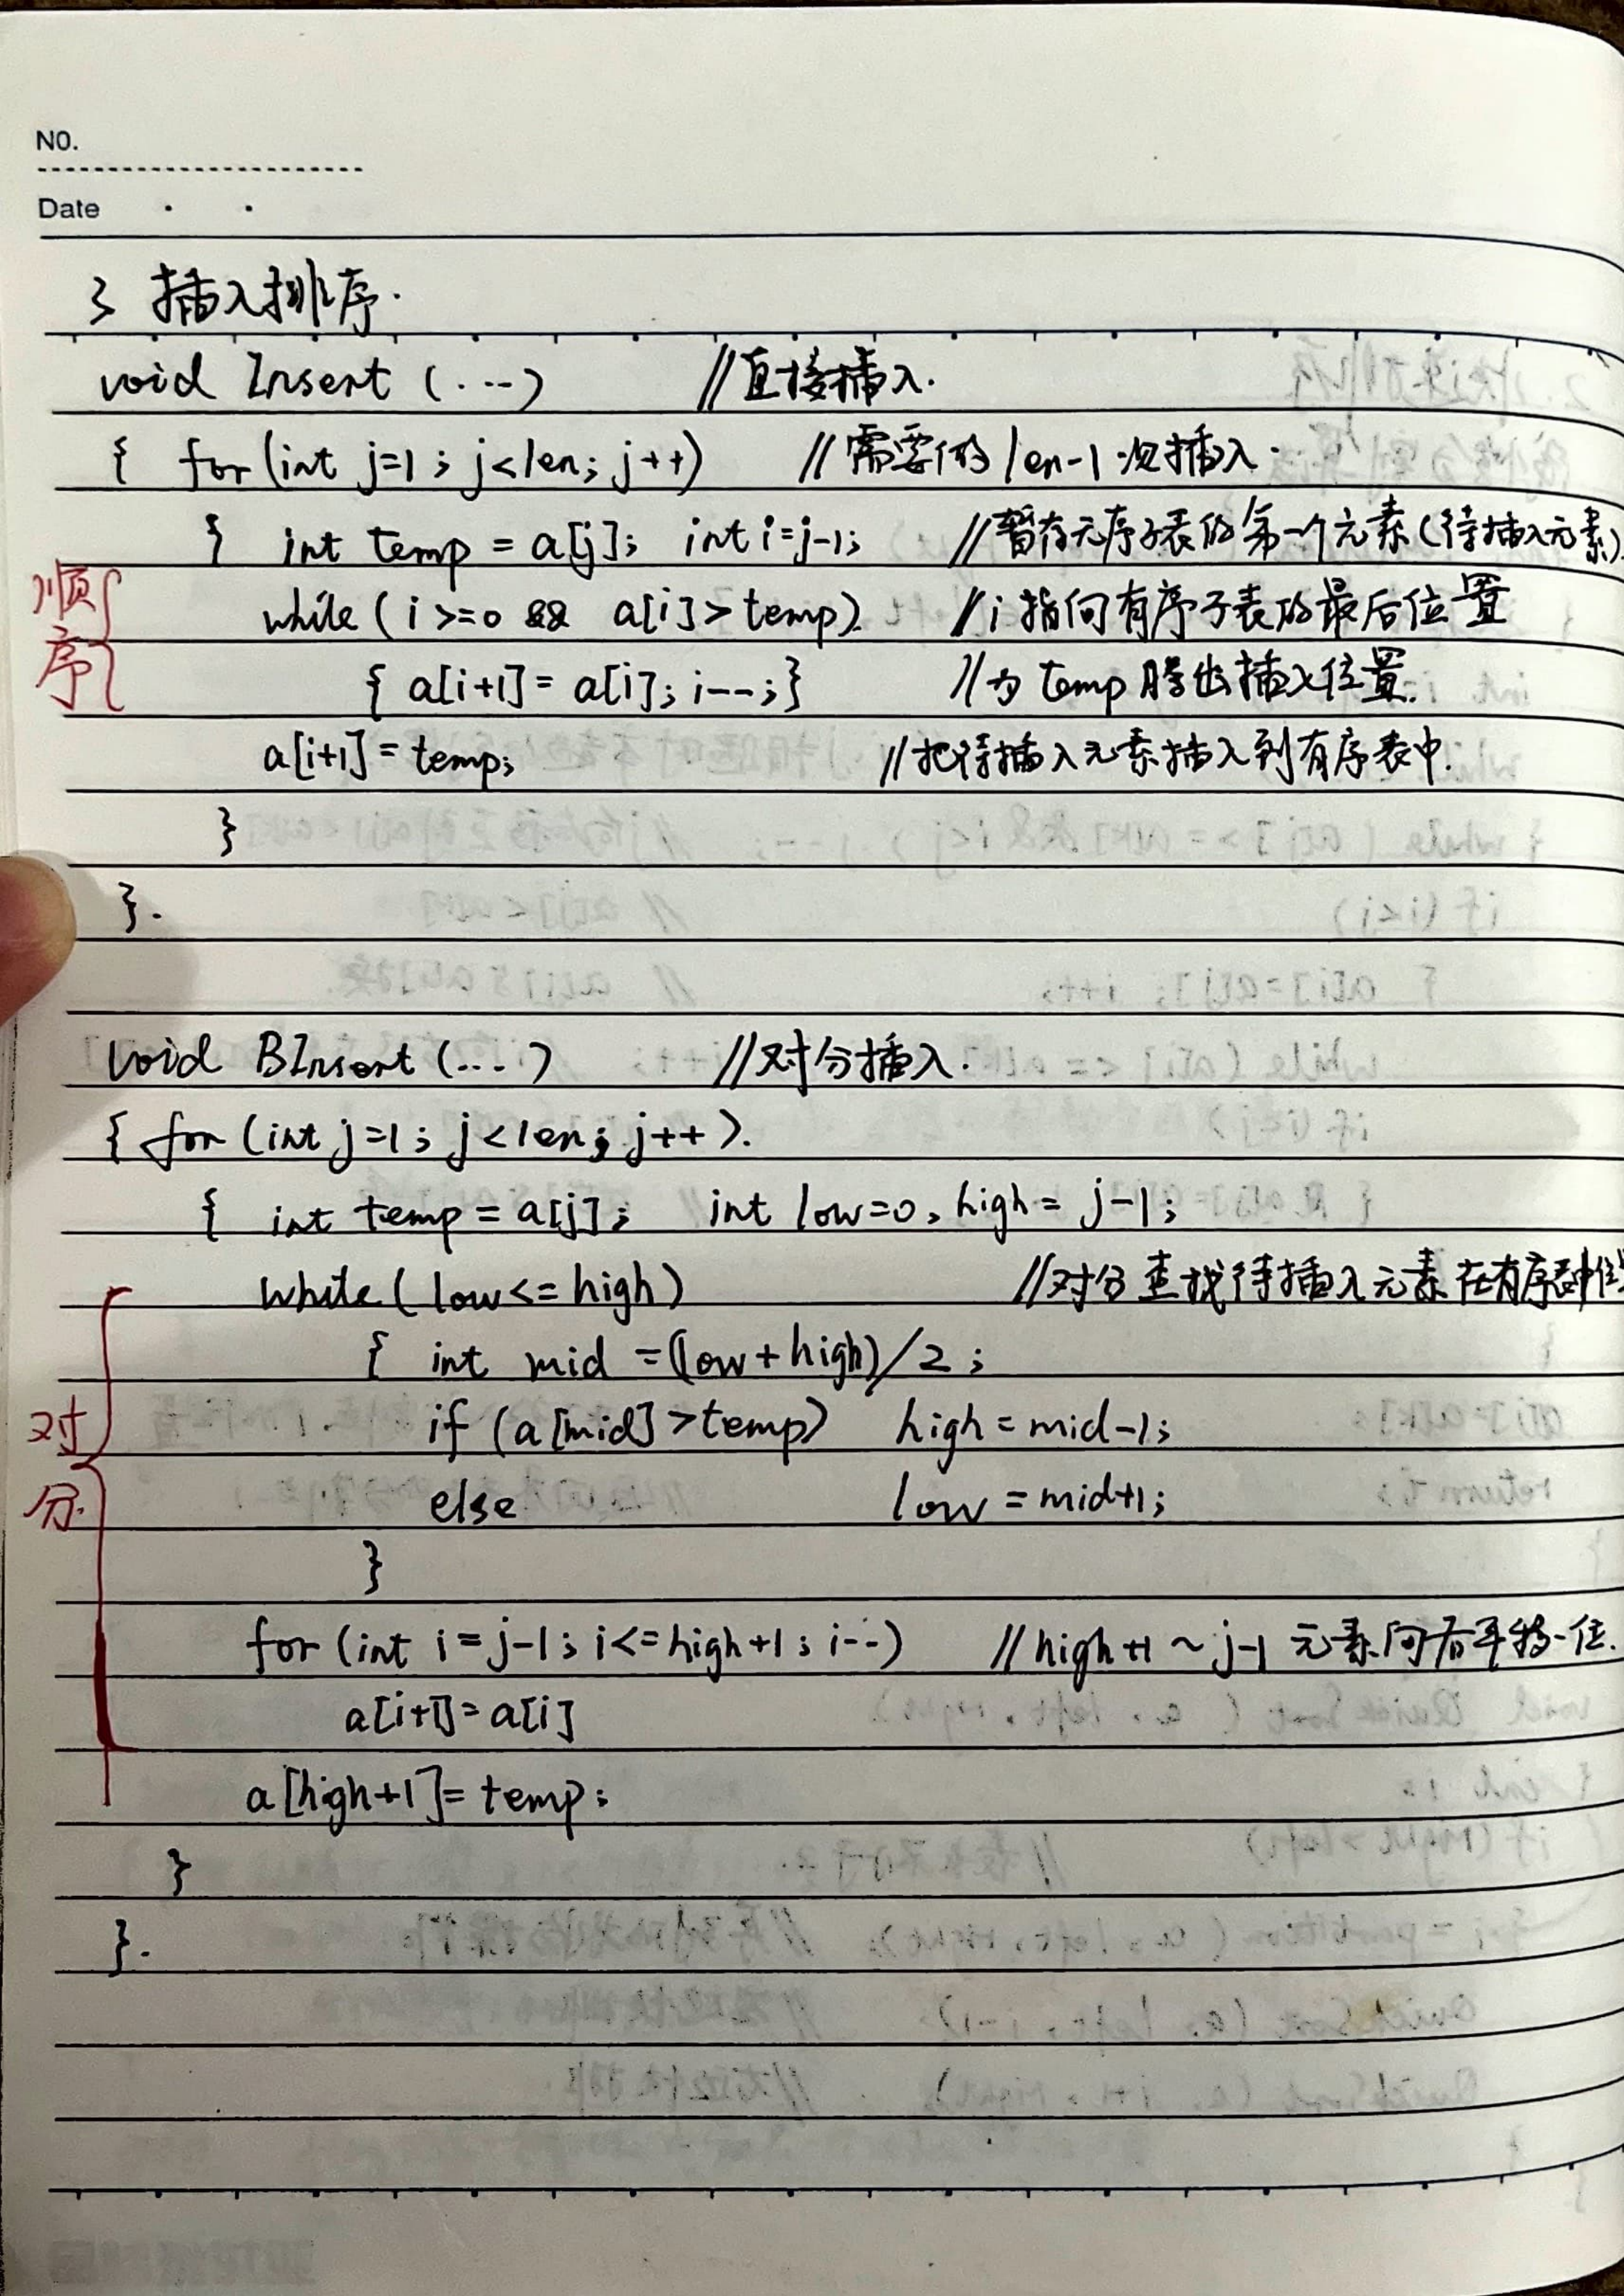 NO.
Date
3 插入排序.
void Insert (...) //直接插入.
{ for (int j=1; j<len; j++) //需要做 len-1 次插入.
{ int temp = a[j]; int i=j-1; //暂存无序子表的第一个元素(待插入元素)
顺序
while (i>=0 && a[i]>temp) //i 指向有序子表的最后位置
{ a[i+1] = a[i]; i--;} //为 temp 腾出插入位置.
a[i+1] = temp; //把待插入元素插入到有序表中.
}
}.
void BInsert (...) //对分插入.
{ for (int j=1; j<len; j++).
{ int temp = a[j]; int low=0, high = j-1;
while (low<=high) //对分查找待插入元素在有序表中位
{ int mid =(low+high)/2;
对分.
if (a[mid]>temp) high = mid-1;
else low = mid+1;
}
for (int i=j-1; i<=high+1; i--) //high+1 ~ j-1 元素向后平移一位.
a[i+1]=a[i]
a[high+1]= temp;
}
}.